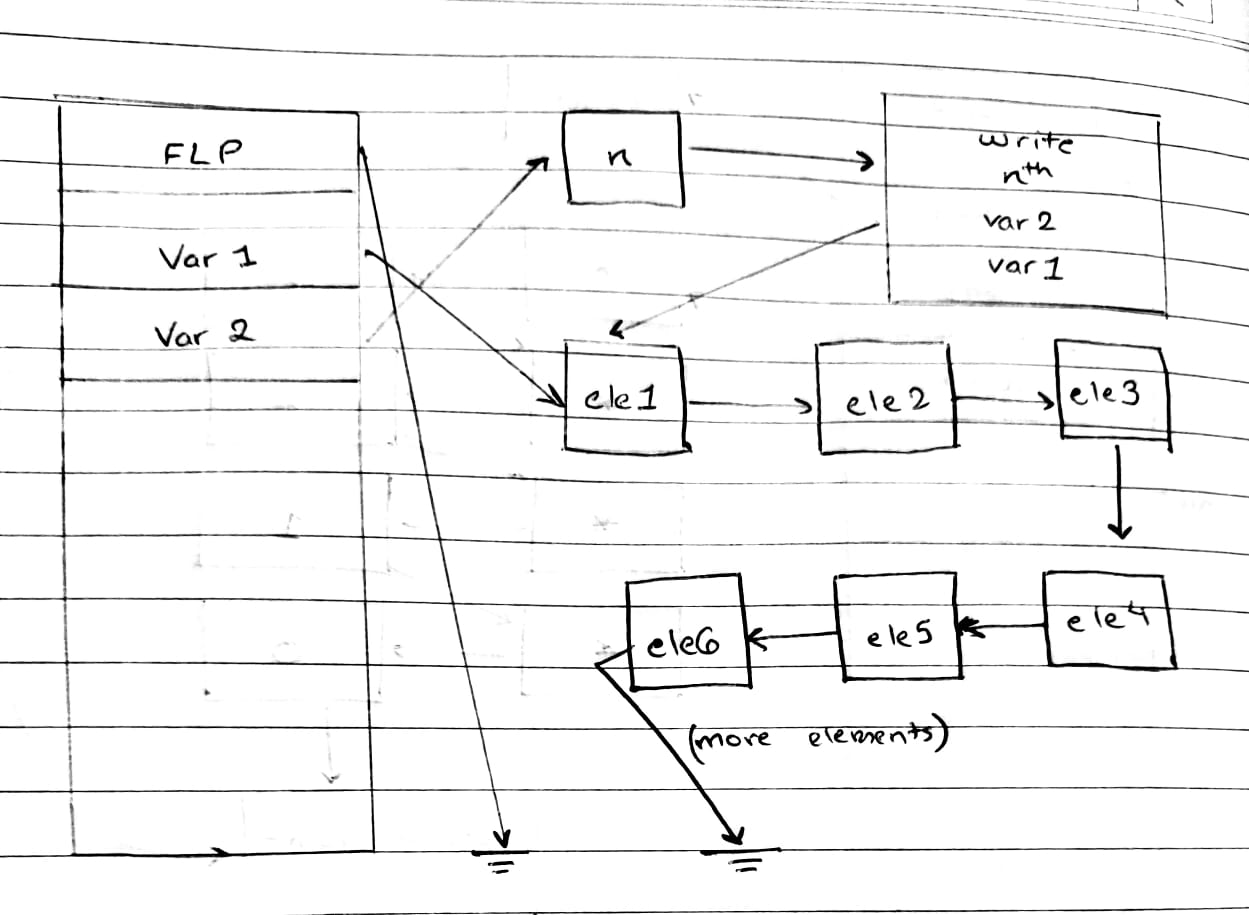 FLP
Var 1
Var 2
n
write
nth
var 2
var 1
ele1
ele2
ele3
ele4
ele5
ele6
(more elements)